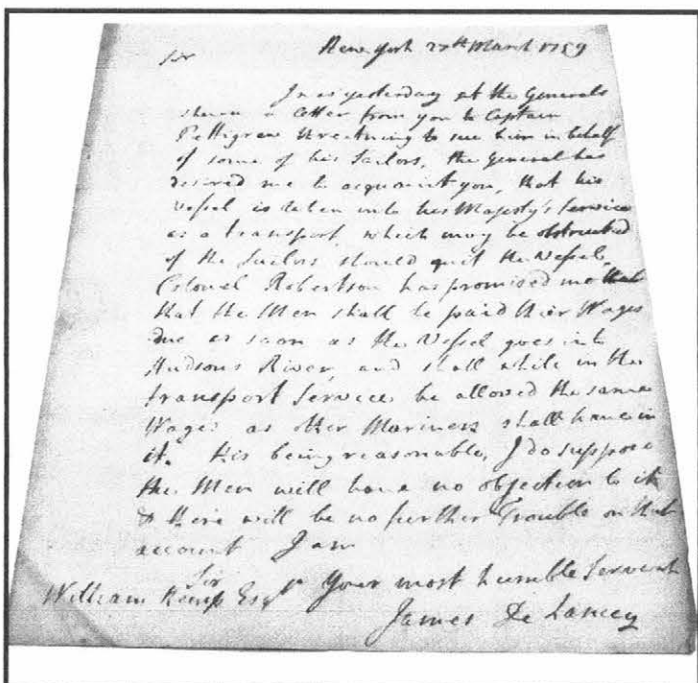 Sir New York 27th March 1759
I was yesterday at the Generals
shewn a Letter from you to Captain
Pettigrew threatning to sue him in behalf
of some of his Sailors, the General has
desired me to acquaint you, that his
Vessel is taken into his Majesty's Service
as a transport, which may be obstructed
if the Sailors should quit the Vessel,
Colonel Robertson has promised me that
that the Men shall be paid their Wages
due as soon as the Vessel goes into
Hudsons River, and shall while in the
transport Service be allowed the same
Wages as other Mariners shall have in
it. this being reasonable, I do suppose
the Men will have no objection to it
& there will be no further Trouble on that
account I am
Sir
William Kemp Esqr Your most humble Servant
James De Lancey